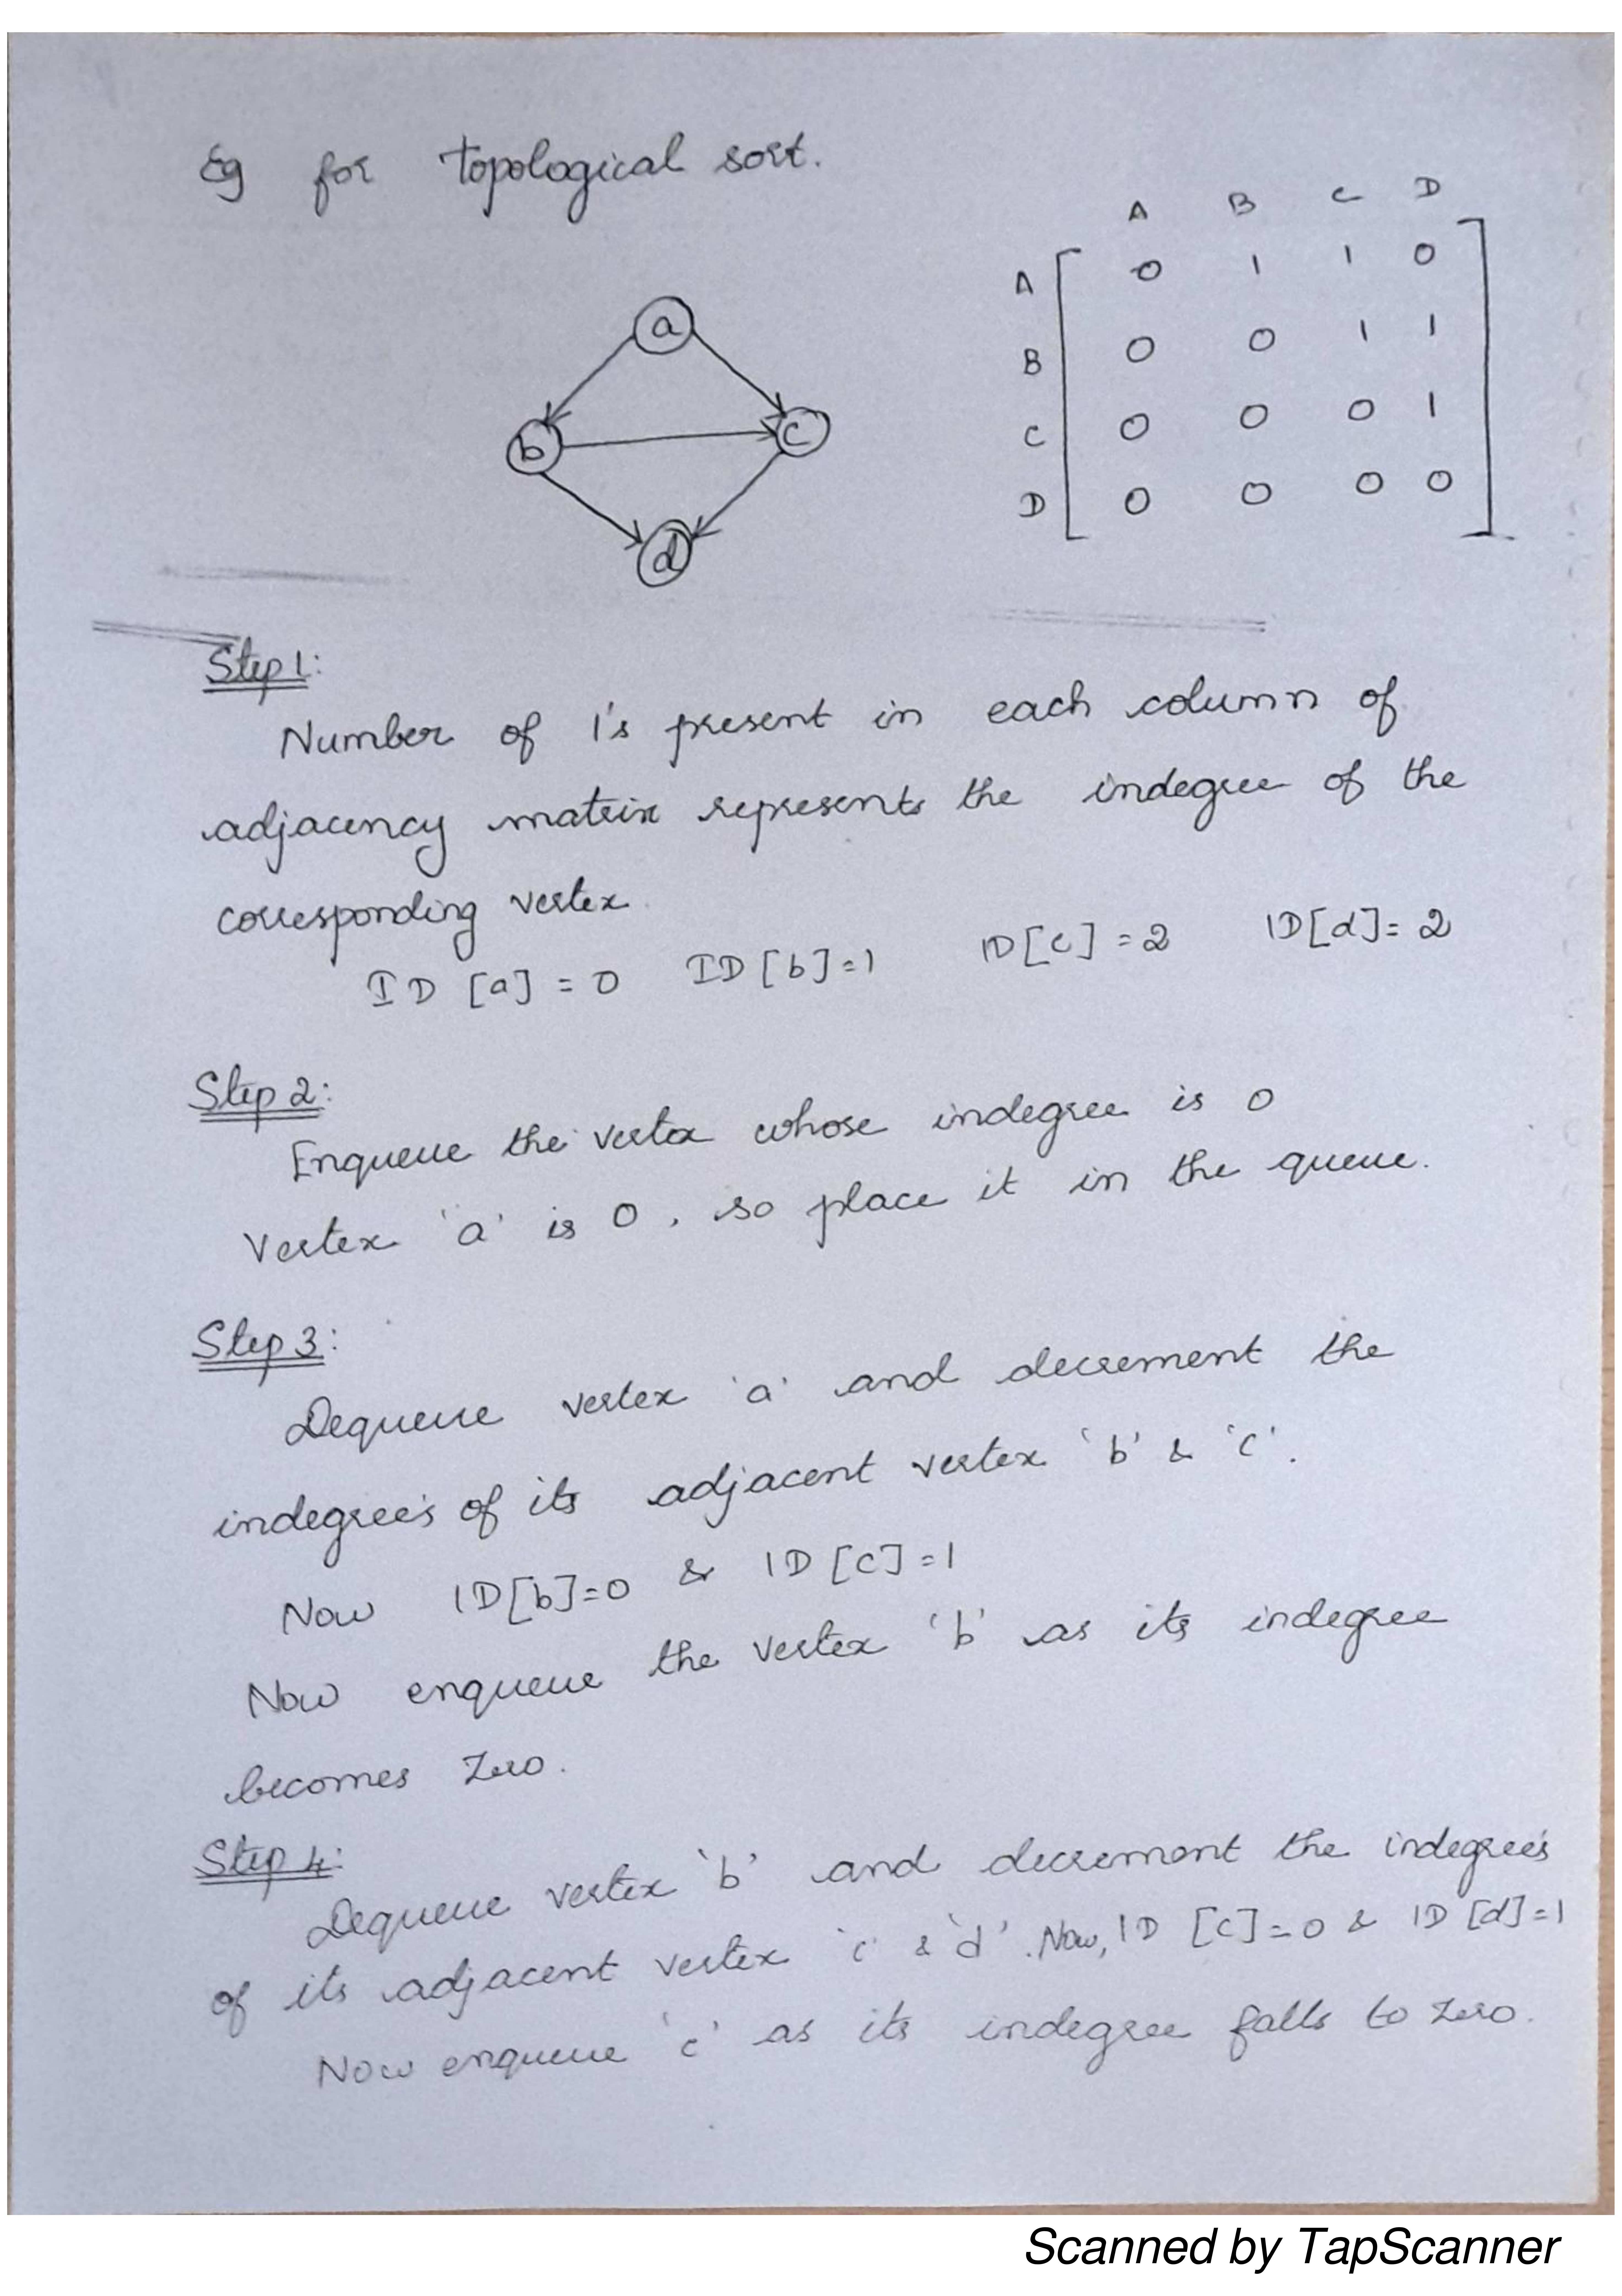 Eg for topological sort.
A B C D
A 0 1 1 0
B 0 0 1 1
C 0 0 0 1
D 0 0 0 0
a
b c
d
Step 1:
Number of 1's present in each column of
adjacency matrix represents the indegree of the
corresponding vertex.
ID [a] = 0 ID [b] = 1 ID [c] = 2 ID [d] = 2
Step 2:
Enqueue the vertex whose indegree is 0
Vertex 'a' is 0, so place it in the queue.
Step 3:
Dequeue vertex 'a' and decrement the
indegree's of its adjacent vertex 'b' & 'c'.
Now ID[b]=0 & ID [c] = 1
Now enqueue the vertex 'b' as its indegree
becomes Zero.
Step 4:
Dequeue vertex 'b' and decrement the indegree's
of its adjacent vertex 'c' & 'd'. Now, ID [c] = 0 & ID [d] = 1
Now enqueue 'c' as its indegree falls to zero.
Scanned by TapScanner